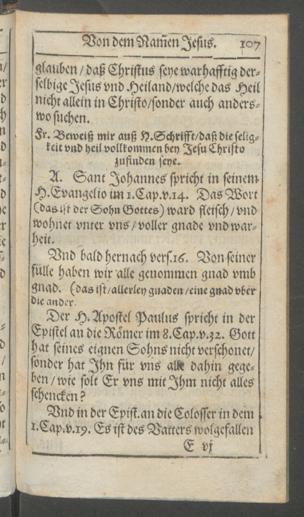 Von dem Nam̃en Jesus. 107
glauben / daß Christus seye warhafftig der-
selbige Jesus vnd Heiland / welche das Heil
nicht allein in Christo / sonder auch anders-
wo suchen.
Fr. Beweiß mir auß H. Schrifft / daß die selig-
keit vnd heil vollkommen bey Jesu Christo
zufinden seye.
A. Sant Johannes spricht in seinem
H. Evangelio im 1. Cap. v. 14. Das Wort
(das ist der Sohn Gottes) ward fleisch / vnd
wohnet vnter vns / voller gnade vnd war-
heit.
Vnd bald hernach vers. 16. Von seiner
fülle haben wir alle genommen gnad vmb
gnad. (das ist / allerley gnaden / eine gnad vber
die ander
Der H. Apostel Paulus spricht in der
Epistel an die Römer im 8. Cap. v. 32. Gott
hat seines eignen Sohns nicht verschonet /
sonder hat Ihn für vns alle dahin gege-
ben / wie solt Er vns mit Ihm nicht alles
schencken?
Vnd in der Epist. an die Colosser in dem
1. Cap. v. 19. Es ist des Vatters wolgefallen
E vj